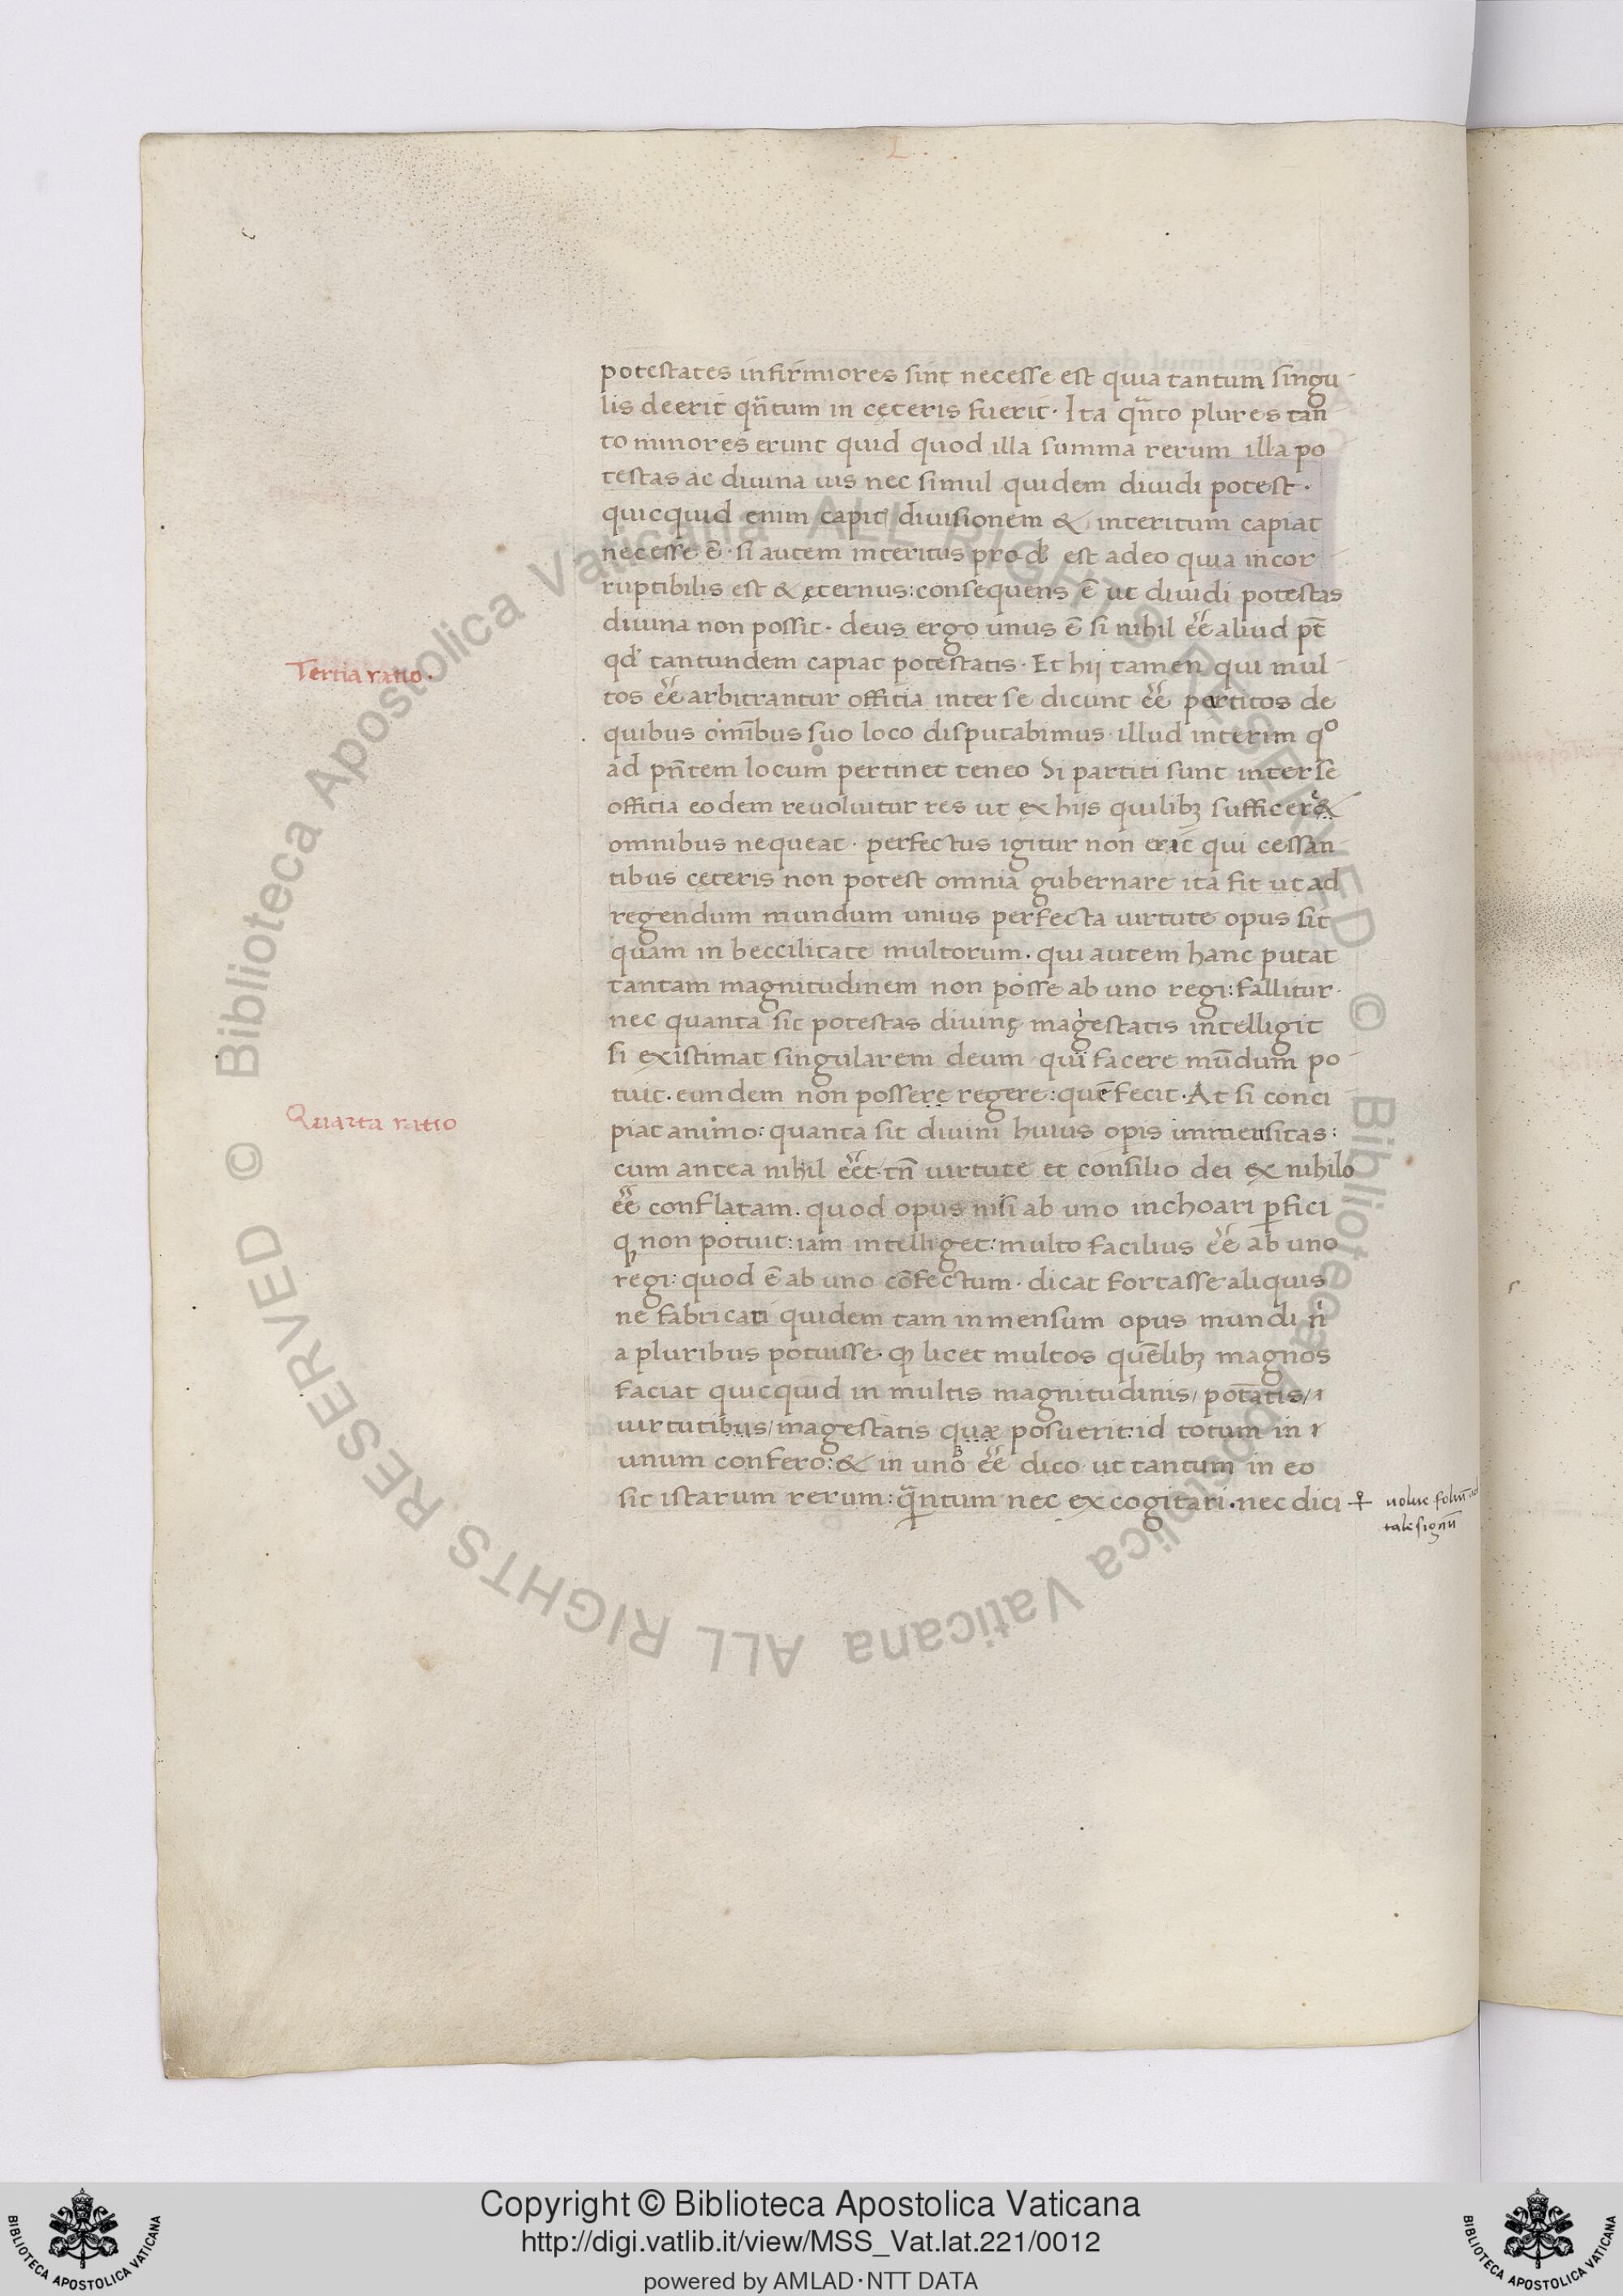 L
potestates infirmiores sint necesse est quia tantum singu
lis deerit qñtum in cęteris fuerit. Ita qñto plures tan
to minores erunt quid quod illa summa rerum illa po
testas ac diuina uis nec simul quidem diuidi potest.
quicquid enim capit diuisionem & interitum capiat
necesse ē. si autem interitus procł est adeo quia incor
ruptibilis est & ęternus: consequens ē ut diuidi potestas
diuina non possit. deus ergo unus ē si nihil ēē aliud pt̄
qđ tantundem capiat potestatis. Et hij tamen qui mul
Tertia ratio.
tos ēē arbitrantur offitia inter se dicunt ēē partitos de
quibus omībus suo loco disputabimus. illud interim qº
ad pñtem locum pertinet teneo Si partiti sunt inter se
offitia eodem reuoluitur res ut ex hijs quilibꝫ sufficere&
omnibus nequeat. perfectus igitur non erit qui cessan
tibus cęteris non potest omnia gubernare ita fit ut ad
regendum mundum unius perfecta uirtute opus sit
quam in beccilitate multorum. qui autem hanc putat
tantam magnitudinem non posse ab uno regi: fallitur.
nec quanta sit potestas diuinę magestatis intelligit
si existimat singularem deum qui facere mūdum po
tuit. eundem non possere regere: quē fecit. At si conci
Quarta ratio
piat animo: quanta sit diuini huius opis immensitas:
cum antea nihil ēēt. tñ uirtute et consilio dei ex nihilo
ēē conflatam. quod opus nisi ab uno inchoari ꝑfici
qꝫ non potuit: iam intelliget: multo facilius ēē ab uno
regi: quod ē ab uno cōfectum. dicat fortasse aliquis
ne fabricari quidem tam inmensum opus mundi ń
a pluribus potuisse. qꝫ licet multos quēlibꝫ magnos
faciat quicquid in multis magnitudinis/ potātis/ ı
uirtutibus/ magestatis quæ posuerit: id totum in ı
unum confero: & in uno ēē dico ut tantum in eo
sit istarum rerum: qñtum nec ex cogitari. nec dici
uolue foliū ad
tale signū
Copyright © Biblioteca Apostolica Vaticana
http://digi.vatlib.it/view/MSS_Vat.lat.221/0012
powered by AMLAD · NTT DATA
BIBLIOTECA APOSTOLICA VATICANA
BIBLIOTECA APOSTOLICA VATICANA
© Biblioteca Apostolica Vaticana ALL RIGHTS RESERVED © Biblioteca Apostolica Vaticana ALL RIGHTS RESERVED